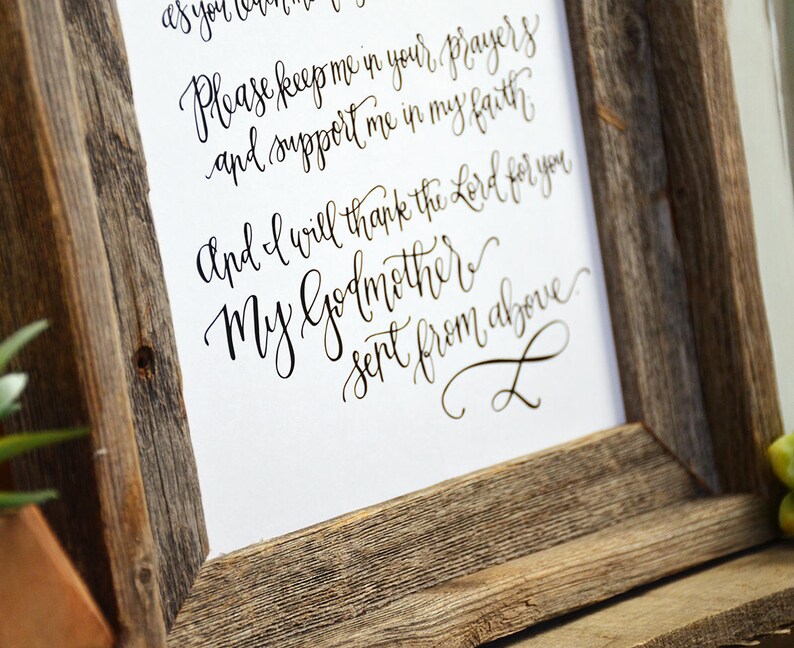 as you teach me
Please keep me in your prayers
and support me in my faith.
And I will thank the Lord for you
My Godmother
sent from above.